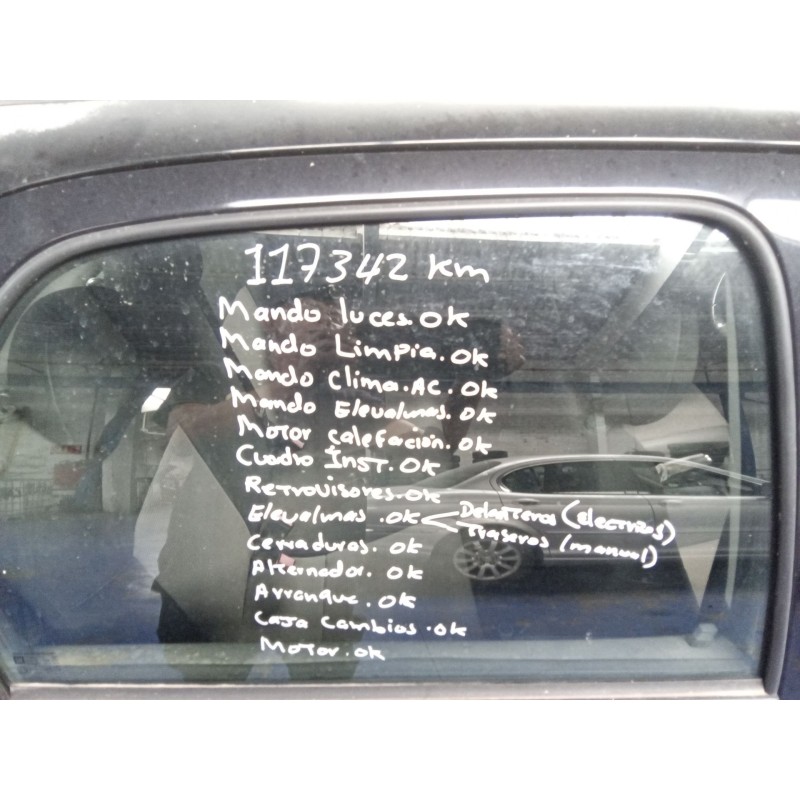 117342 km
Mando luces.OK
Mando Limpia.OK
Mando clima.AC.OK
Mando Elevalunas.OK
Motor calefacion.OK
Cuadro Inst.OK
Retrovisores.OK
Elevalunas.OK Delanteros (electricos)
Traseros (manual)
Cerraduras.OK
Alternador.OK
Arranque.OK
Caja Cambios.OK
Motor.OK